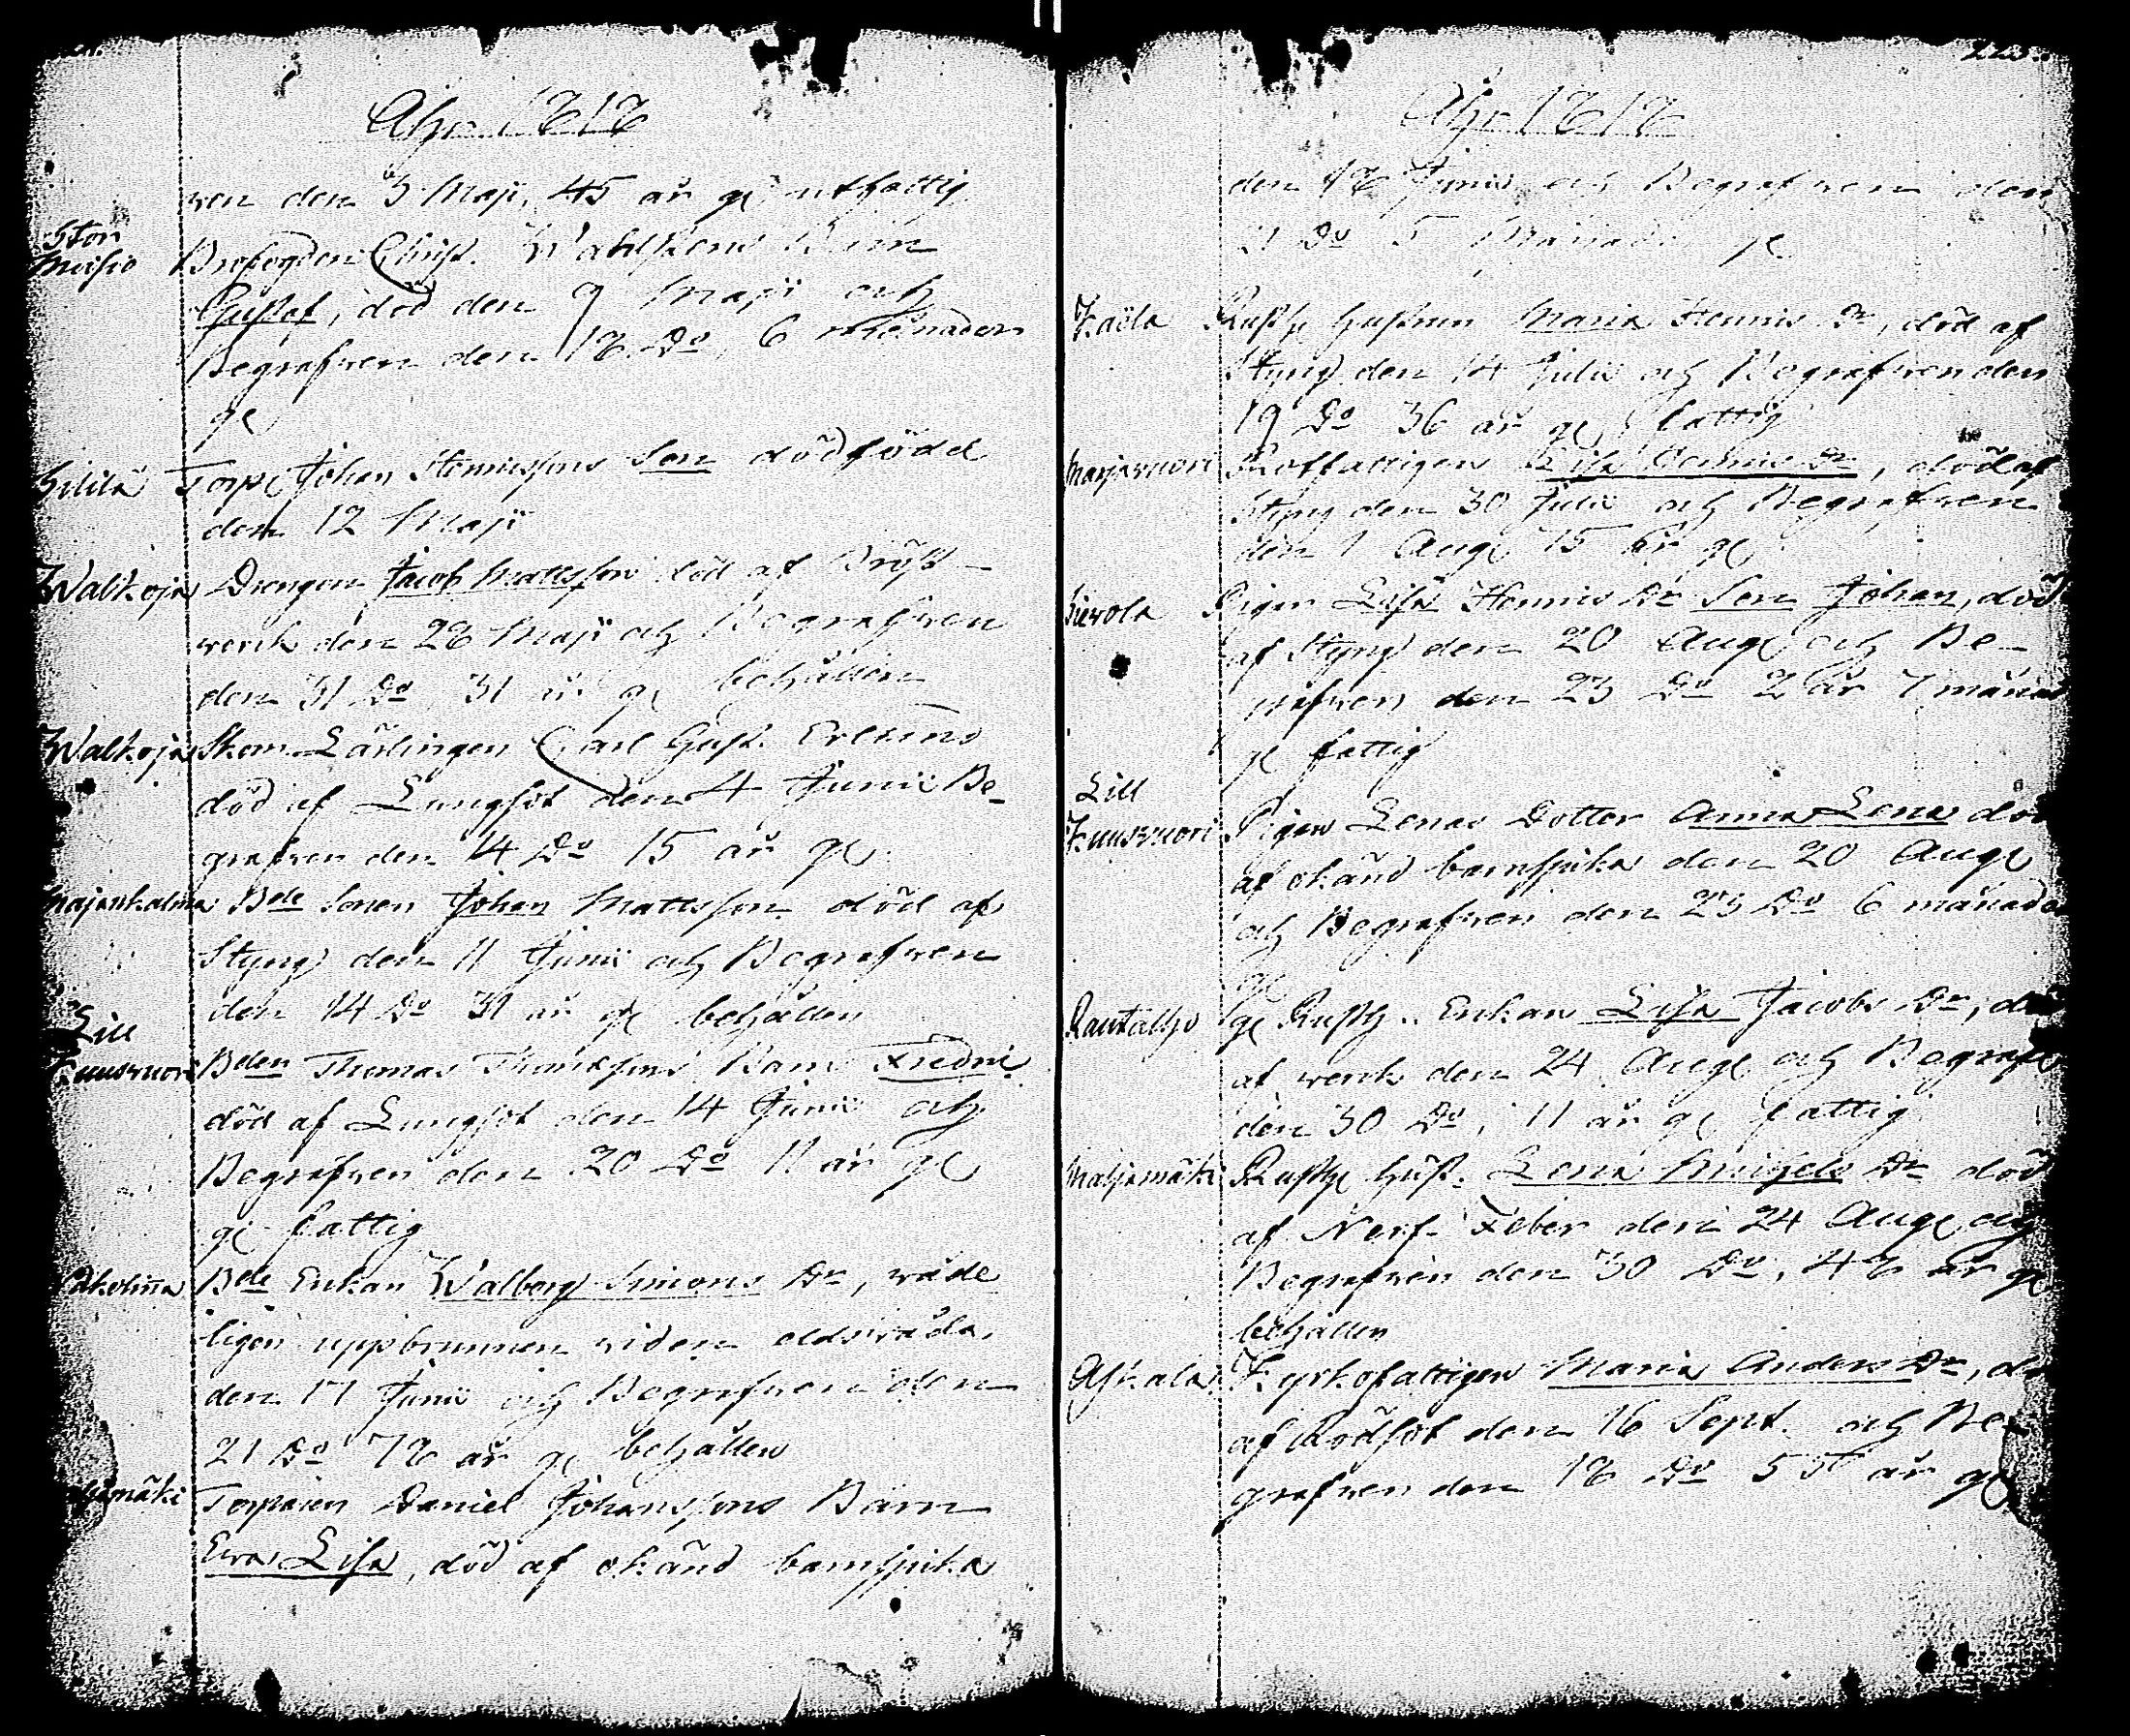 Åhr 1818
ven den 3 Maji, 45 år gl utfattig
Stor
Moisio Brofogden Christ. Wahlstens Barn
Gustaf, död den 9 Maji och
Begrafven den 18 Do, 6 månader
gl
Torp: Johan Henrikssons Son dödfödd
den 12 Maji
Walkoja Drengen Jacob Mattsson död af Bröst-
werck den 28 Maji och Begrafven
den 31 Do 31 år gl behållen
Walkoja Skom. Lärlingen Carl Gust.
död af Lungsot den 4 Junii Be-
grafven den 14 Do 15 år gl
Bde Sonen Johan Mattsson död af
Styng den 11 Junii och Begrafven
den 14 Do 31 år gl behållen
Lill
Kuusvuori Bden Thomas Barn
död af Lungsot den 14 Junii och
Begrafven den 20 Do 11 år gl
gl fattig
Bde Enkan Walborg Simons Dr, våde
ligen uppbrunnen viden eldsvåda
den 17 Junii och Begrafven den
21 Do 78 år gl behållen
Torparen Daniel Johanssons Barn
Eva Lisa, död af okänd barnsjuka
Åhr 1818
den 18 Junii och Begrafven den
21 Do 5 Månader gl
Kaela Rusth Hustrun Maria Henriks Dr, död af
Styng den 14 Julii och Begrafven den
19 Do 36 år gl, fattig
Marjavuori Rotfattigen Lisa Dr, död af
Styng den 30 Julii och Begrafven
den 1 Aug 75 år gl
Sierola Pigan Lisa Henriks Dr Son Johan, död
af Styng den 20 Aug och Be-
grafven den 23 Do 2 år 7 månad
gl fattig
Lill
Kuusvuori Pigan Lenas Dotter Anna Lena död
af okänd barnsjuka den 20 Aug
och Begrafven den 23 Do 6 månader
gl
Rautalho gl Rusth. Enkan Lisa Jacobs Dr,
af werck den 24 Aug och Begrafv
den 30 Do, 71 år gl fattig
Maljamäki Rusth Hust. Lena Michels Dr död
af Nerf-Feber den 24 Aug och
Begrafven den 30 Do, 48 år gl
behållen
Askala Kyrkofattigen Maria Anders Dr, dö
af Rödsot den 16 Sept. och Be-
grafven den 18 Do 55 år gl